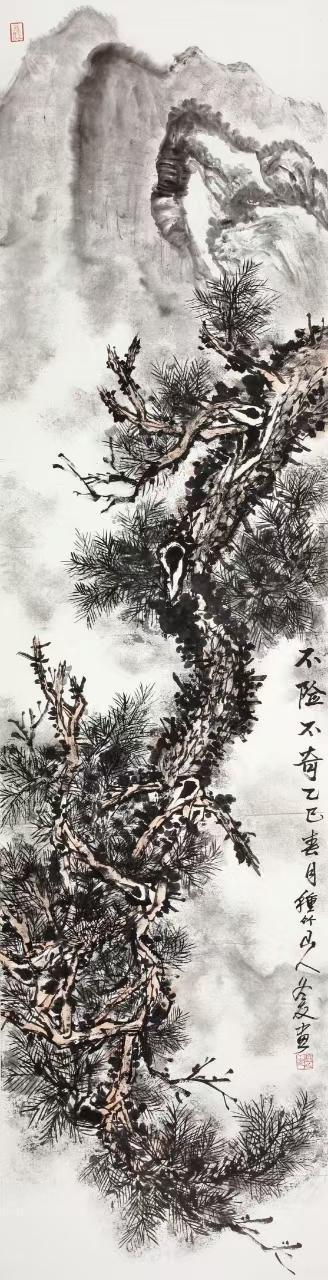 不险不奇乙巳春月種竹山人冬夏画